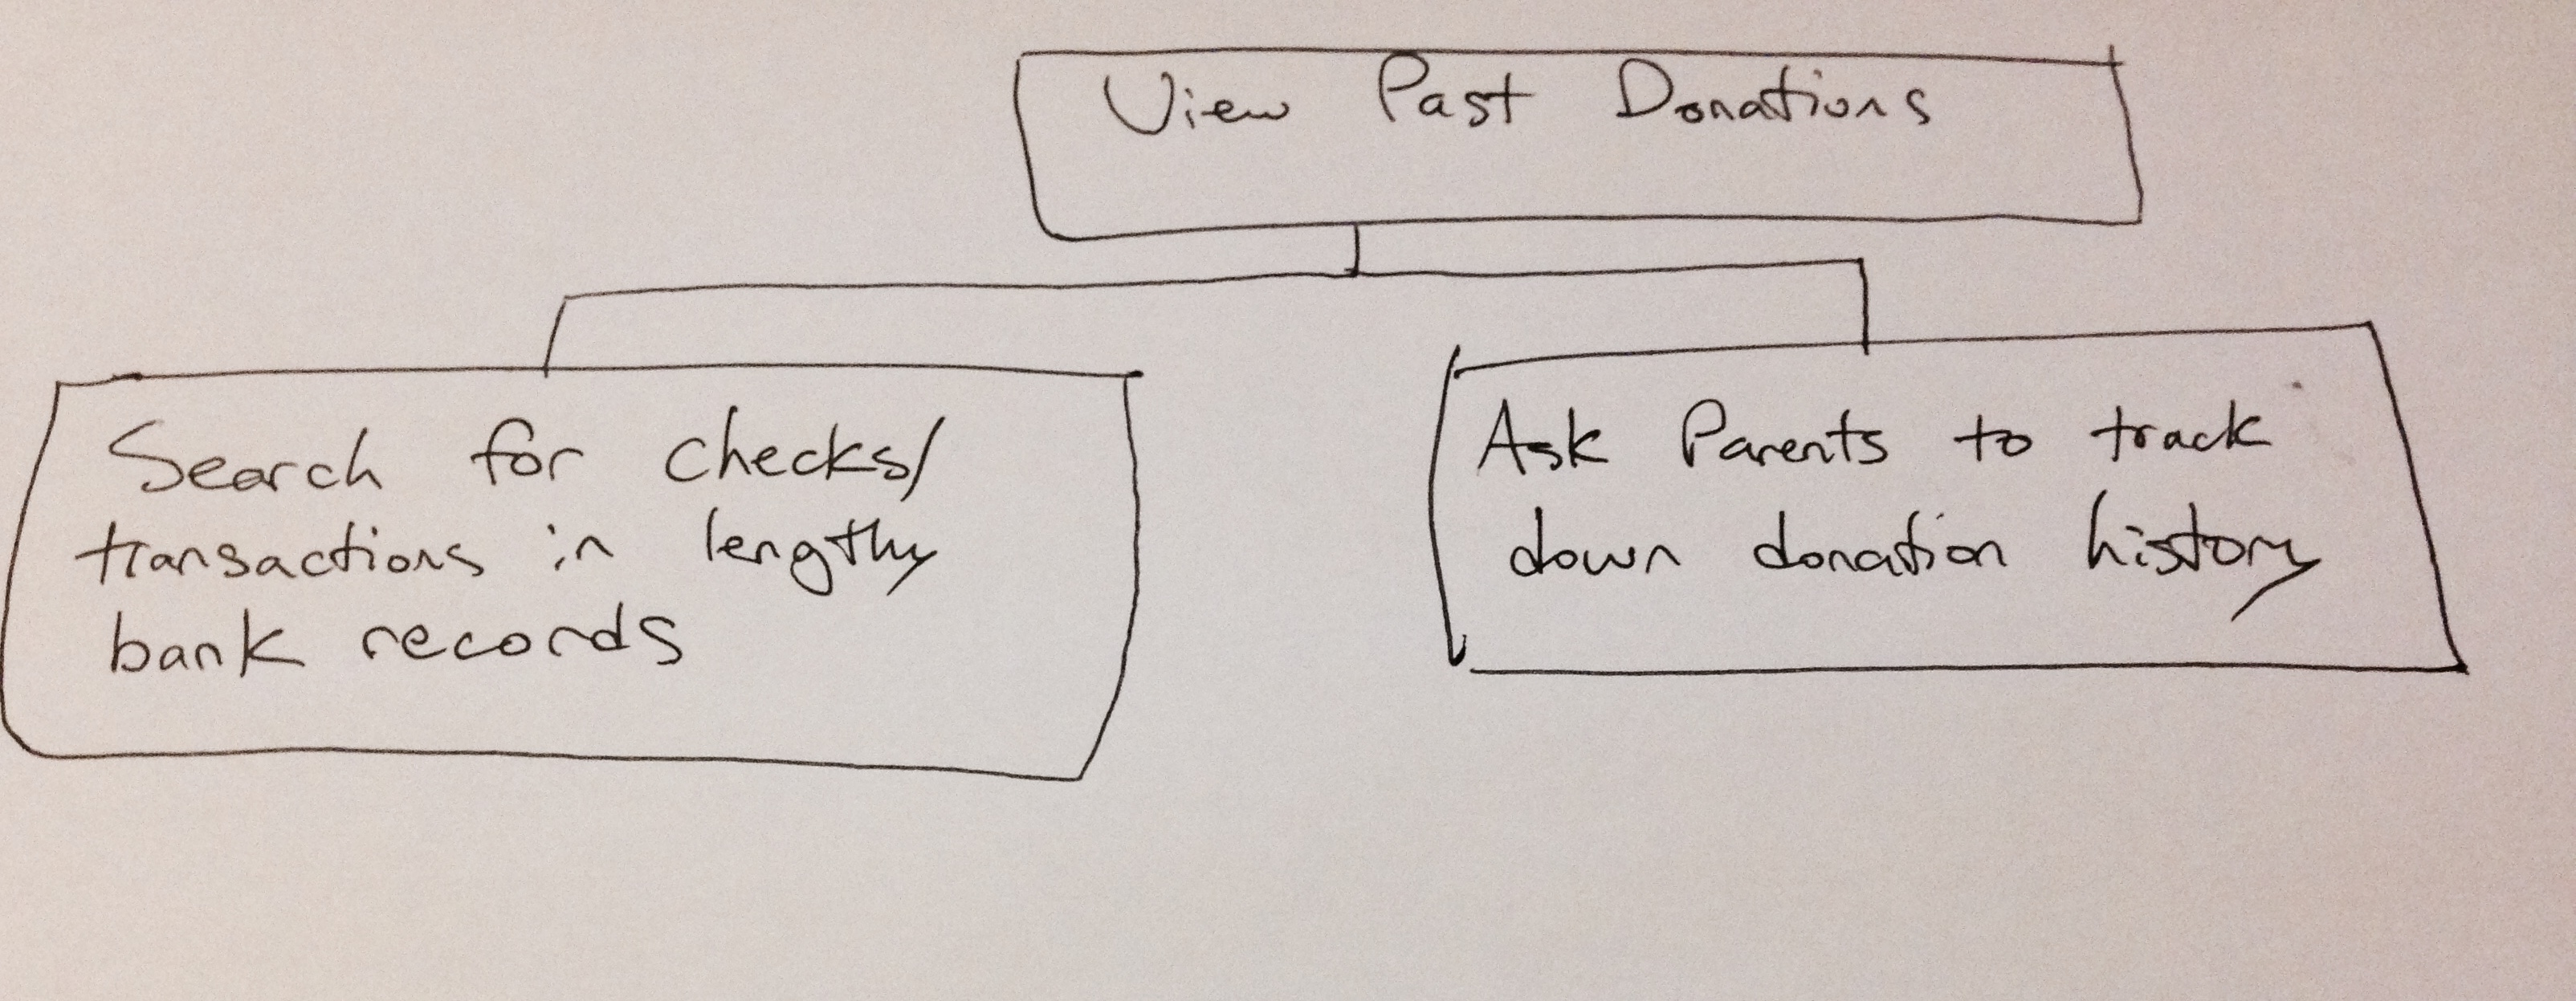 View Past Donations
Search for checks/
transactions in lengthy
bank records
Ask Parents to track
down donation history